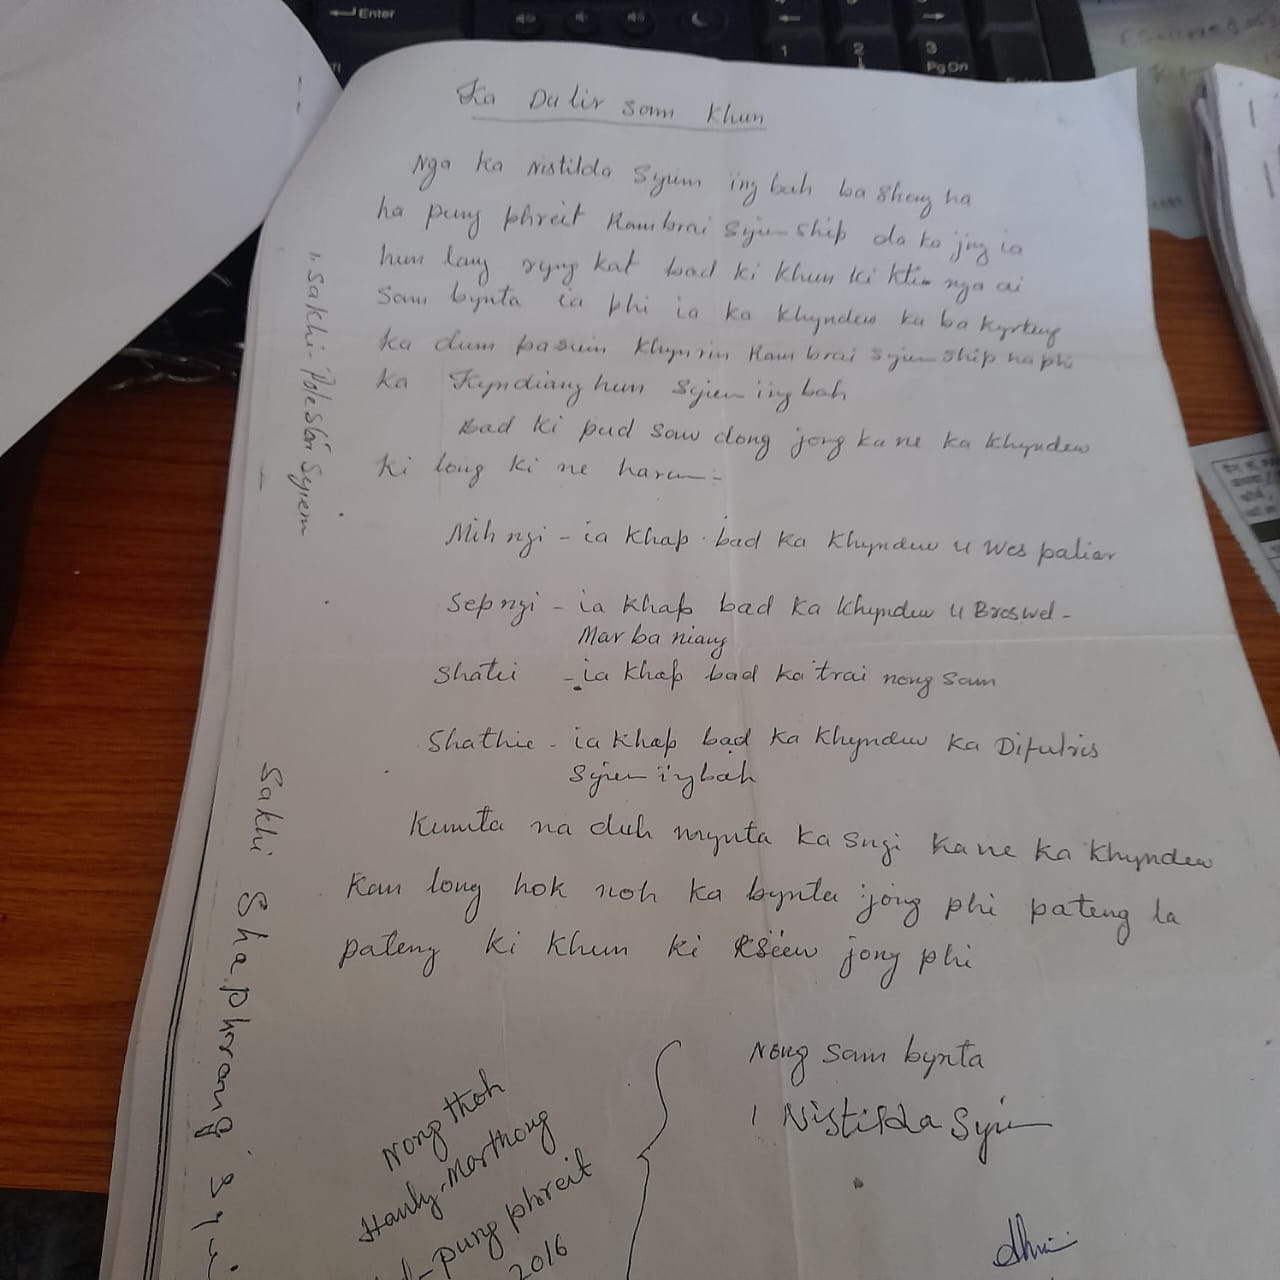 Ka Dulir Sam Khun
Nga ka Nistilda Syiem ïng bah ba shong ha
ha pung phreit Rambrai Syiemship da ka jing ia
hun lang ryng kat bad ki khun ki ktie nga ai
Sam bynta ia phi ia ka Khyndew ka ba kyrteng
ka dum pasuin Khynrin Rambrai Syiemship ha phi
ka Kyndiang hun Syiem iing bah
Bad ki pud saw dong jong ka ne ka Khyndew
ki long ki ne harum:-
Mih ngi - ia khap bad ka Khyndew u Wes paliar
Sep ngi - ia khap bad ka khyndew u Broswel -
Mar ba niang
Shatei - ia khap bad ka trai nong sam
Shathie - ia khap bad ka Khyndew ka
Syiem ïng bah
Kumta na duh mynta ka sngi ka ne ka khyndew
Kan long hok noh ka bynta jong phi pateng la
pateng ki khun ki kséew jong phi
Nong sam bynta
1 Nistilda Syiem
Nong thoh
Hanly. Marthong
pung phreit
2016
1. Sakhi - Polestar Syiem
Sakhi Sha.phrang Syi